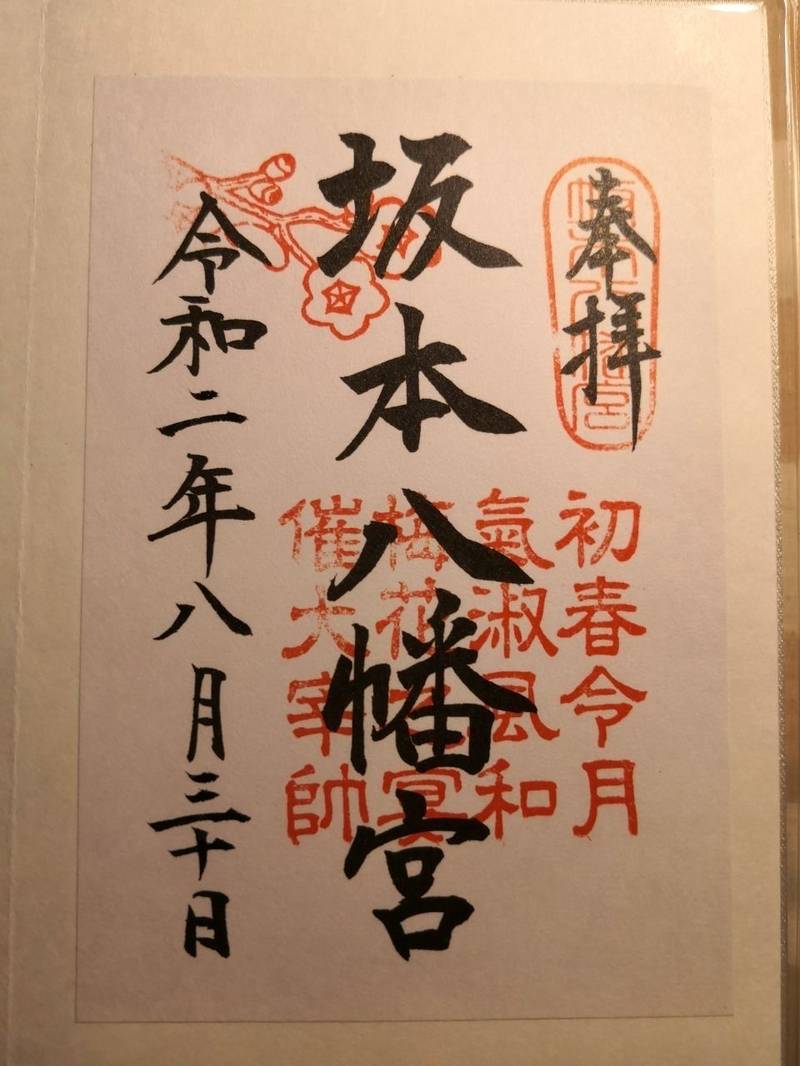 奉拝
初春令月
氣淑風和
梅花之宴
催大宰帥
坂本八幡宮
令和二年八月三十日